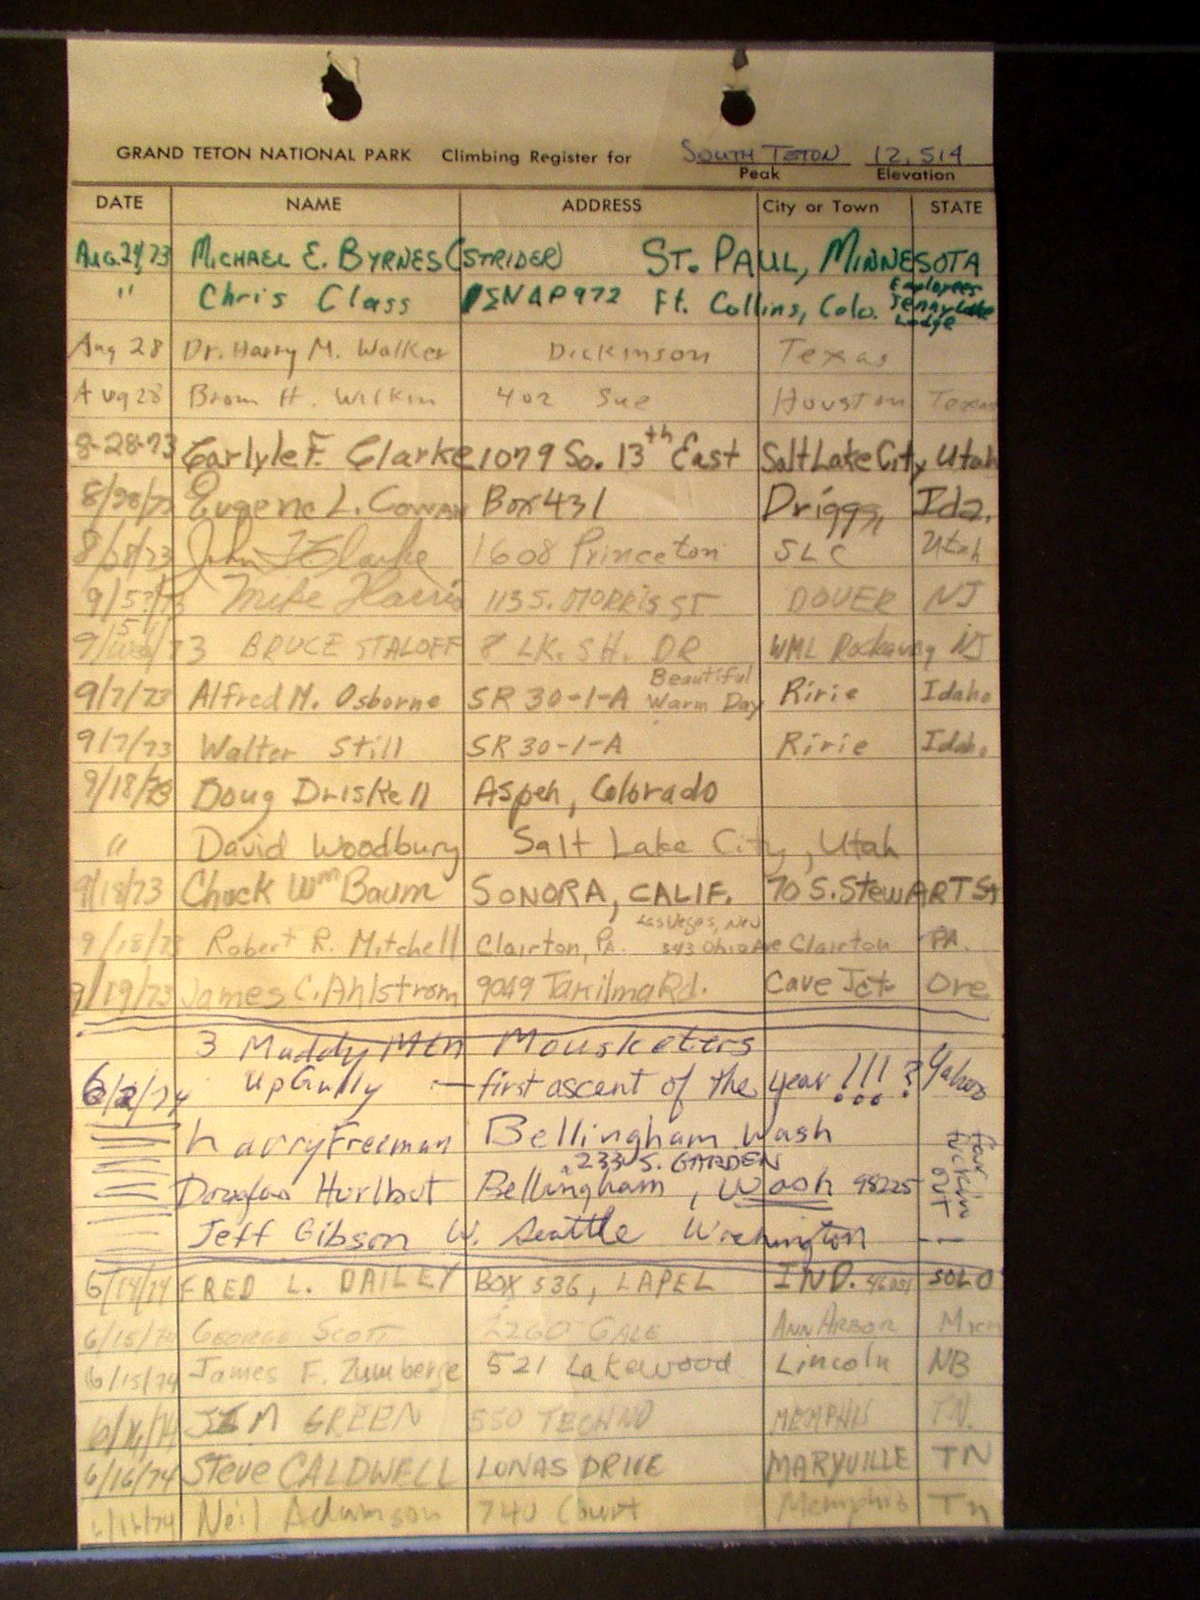 GRAND TETON NATIONAL PARK Climbing Register for SOUTH TETON 12,514
Peak Elevation
DATE NAME ADDRESS City or Town STATE
Aug. 24/73 MICHAEL E. BYRNES (STRIDER) ST. PAUL, MINNESOTA
" Chris Class ΣNAP972 Ft. Collins, Colo. Employees Jenny Lake Lodge
Aug 28 Dr. Harry M. Walker Dickinson Texas
Aug 28 H. Wilkin 402 Sue Houston Texas
8-28-73 Carlyle F. Clarke 1079 So. 13th East Salt Lake City Utah
8/28/73 Eugene L. Cowan Box 431 Driggs, Ida.
8/28/73 John Clarke 1608 Princeton SLC Utah
9/5/73 Mike Harris 113 S. MORRIS ST DOVER NJ
9/5/73 BRUCE STALOFF 8 LK. SH. DR WML Rockaway NJ
9/7/73 Alfred M. Osborne SR 30-1-A Beautiful Warm Day Ririe Idaho
9/7/73 Walter Still SR 30-1-A Ririe Idaho
9/18/73 Doug Driskell Aspen, Colorado
" David Woodbury Salt Lake City, Utah
9/18/73 Chuck Wm Baum SONORA, CALIF. 70 S. STEWART St
Las Vegas, Nev
9/18/73 Robert R. Mitchell Clairton, PA. 343 Ohio Ave Clairton PA.
9/19/73 James C. Ahlstrom 9049 Takilma Rd. Cave Jct Ore
3 Muddy Mtn Mousketers
6/2/74 Up Gully — first ascent of the year !!! ? Yahoo
Larry Freeman Bellingham Wash
233 S. GARDEN
Douglas Hurlbut Bellingham, Wash 98225
Jeff Gibson W. Seattle Washington
far fuckin out !
6/14/74 FRED L. DAILEY BOX 536, LAPEL IND. 46051 SOLO
6/15/74 GEORGE SCOTT 2260 GALE ANN ARBOR Mich
6/15/74 James F. Zumberge 521 Lakewood Lincoln NB
6/16/74 JIM GREEN 550 MEMPHIS TN.
6/16/74 Steve CALDWELL LONAS DRIVE MARYVILLE TN
6/16/74 Neil Adamson 740 Court Memphis Tn